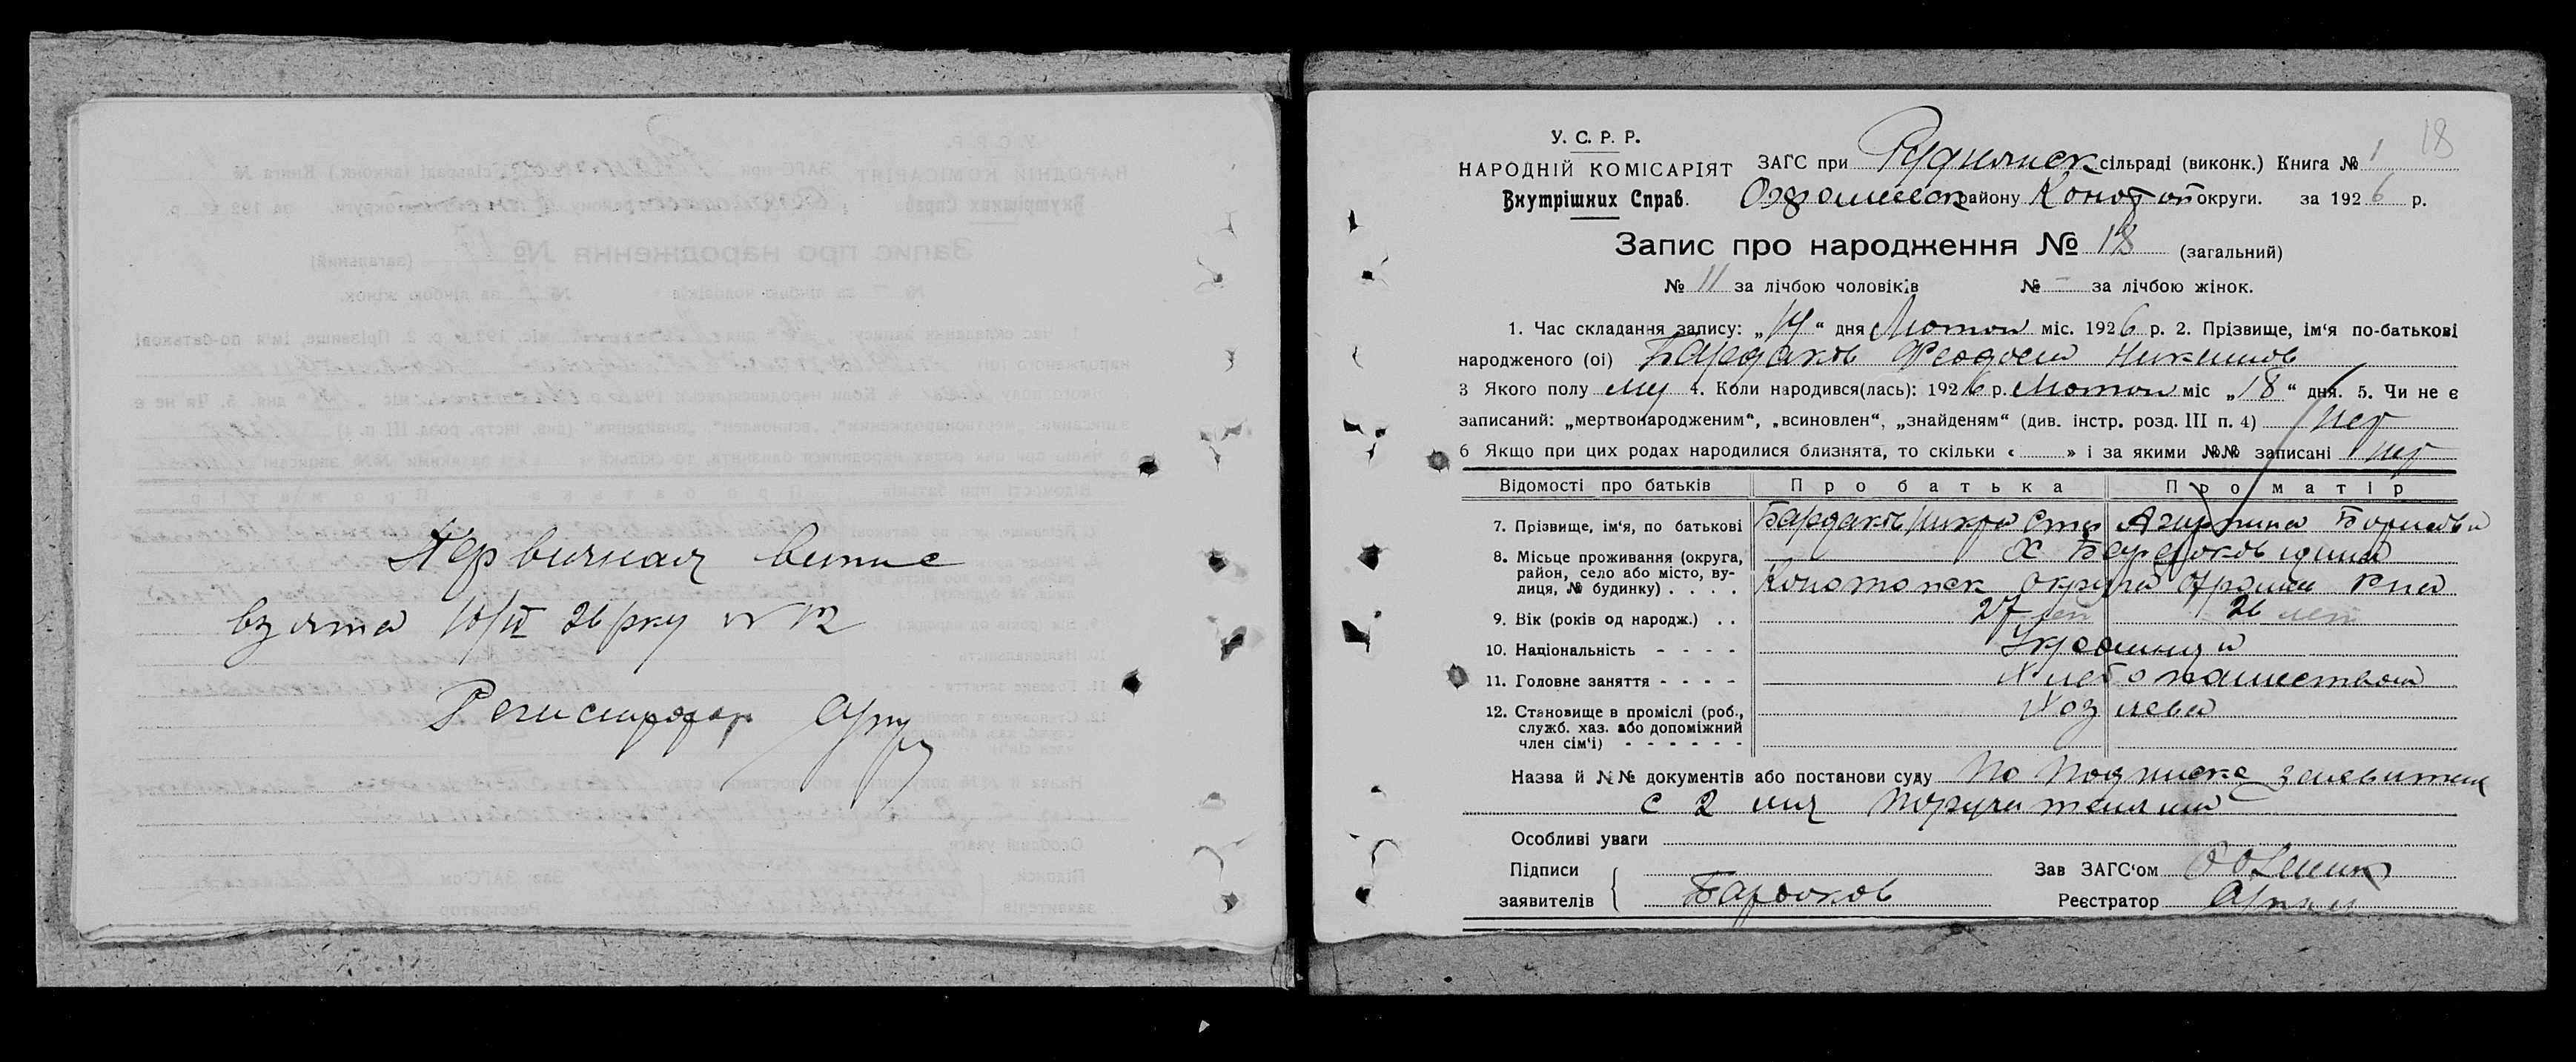 Первичная випис
взята 10/IV 26 рку N 12
Регистратор
18
У. С. Р. Р.
НАРОДНІЙ КОМІСАРІЯТ
Внутрішних Справ.
ЗАГС при Руднянск сільраді (виконк.) Книга № 1
району Конотоп округи. за 1926 р.
Запис про народження № 18 (загальний)
№ 11 за лічбою чоловіків № - за лічбою жінок.
1. Час складання запису: „ “ дня Лютои міс. 1926 р. 2. Прізвище, ім‘я по-батькові
народженого (оі) Бардаков Феодоси Никитов
3 Якого полу му 4. Коли народився(лась): 1926 р. Лютои міс „18“ дня. 5. Чи не є
записаний: „мертвонародженим“, „всиновлен“, „знайденям“ (див. інстр. розд. III п. 4) нет
6 Якщо при цих родах народилися близнята, то скільки « » і за якими №№ записані нет
Відомості про батьків Про батька Про матір
7. Прізвище, ім‘я, по батькові Бардаков Никита Агрипина Борисовна
8. Місьце проживання (округа, район, село або місто, вулиця, № будинку) . . . . Х Бардаковщина
Конотопск округа
9. Вік (років од народж.) . . 27 лет 26 лет
10. Національність - - - - Украинци
11. Головне заняття - - - - Хлебопашеством
12. Становище в проміслі (роб., служб. хаз. або допоміжний член сім‘і) - - - - - - Хозяева
Назва й №№ документів або постанови суду По подписке заевител
с 2 мя поручителями
Особливі уваги
Підписи Зав ЗАГС‘ом
заявителів Бардаков Реєстратор